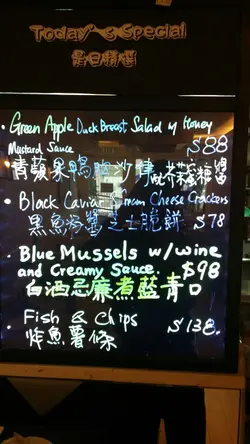 Today's Special
是日精選
• Green Apple Duck Breast Salad w/ Honey
Mustard Sauce $88
青蘋果鴨胸沙律配芥末蜜糖醬
• Black Caviar Cream Cheese Crackers
黑魚子醬芝士脆餅 $78
• Blue Mussels w/ wine
and Creamy Sauce $98
白酒忌廉煮藍青口
• Fish & Chips $138.
炸魚薯條